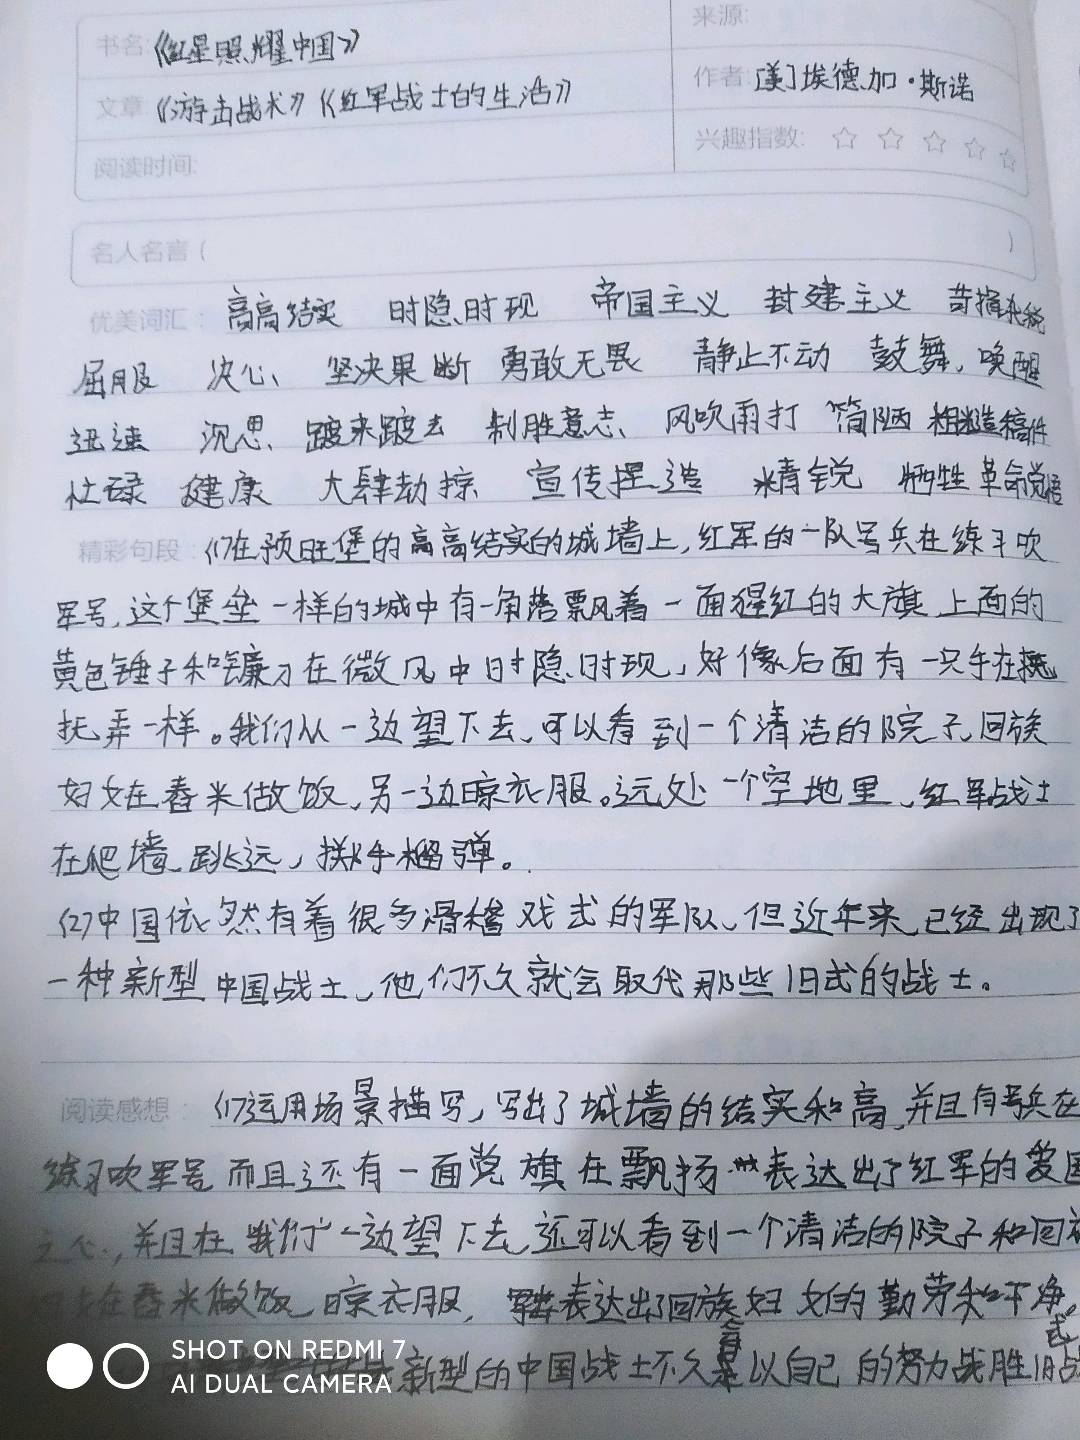 书名:《红星照耀中国》
来源:
文章《游击战术》《红军战士的生活》
作者:[美]埃德加·斯诺
阅读时间:
兴趣指数: ☆ ☆ ☆ ☆ ☆
名人名言( )
优美词汇: 高高结实 时隐时现 帝国主义 封建主义 苛捐杂税
屈服 决心、 坚决果断 勇敢无畏 静止不动 鼓舞、唤醒
迅速 沉思、踱来踱去 制胜意志、风吹雨打 简陋 粗糙稿件
忙碌 健康 大肆劫掠 宣传捏造 精锐 牺牲 革命觉悟
精彩句段:(1)在预旺堡的高高结实的城墙上,红军的一队号兵在练习吹
军号,这个堡垒一样的城中有一角落飘着一面猩红的大旗,上面的
黄色锤子和镰刀在微风中时隐时现,好像后面有一只手在
抚弄一样。我们从一边望下去,可以看到一个清洁的院子,回族
妇女在舂米做饭,另一边晾衣服。远处一个空地里,红军战士
在爬墙、跳远、掷手榴弹。
(2)中国依然有着很多滑稽戏式的军队,但近年来,已经出现了
一种新型中国战士,他们不久就会取代那些旧式的战士。
阅读感想:(1)运用场景描写,写出了城墙的结实和高,并且有号兵在
练习吹军号而且还有一面党旗在飘扬 表达出了红军的爱国
之心,并且在我们一边望下去,还可以看到一个清洁的院子和回族
在舂米做饭,晾衣服, 表达出了回族妇女的勤劳和干净。
新型的中国战士不久会以自己的努力战胜旧式战
SHOT ON REDMI 7
AI DUAL CAMERA